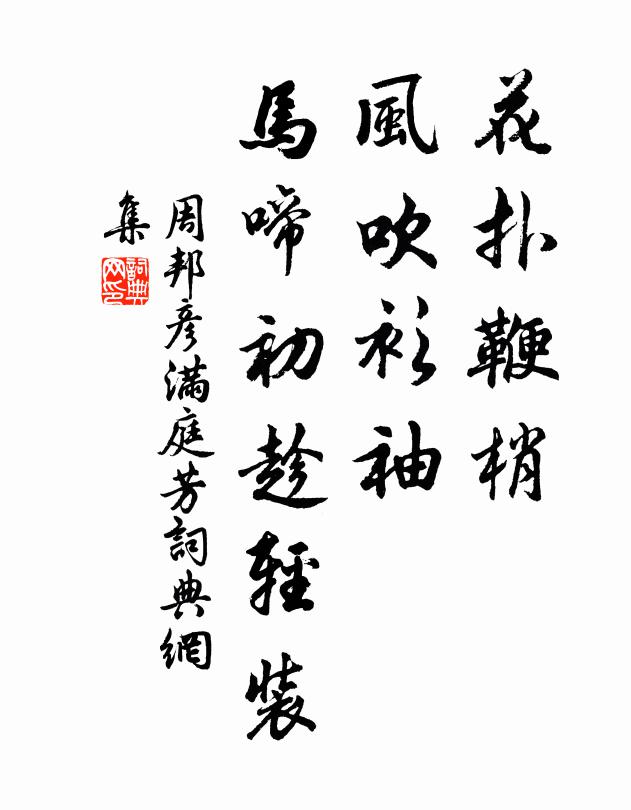 花扑鞭梢
風吹衫袖
馬啼初趁輕裝
周邦彥滿庭芳詞典網
集
詞典
网印